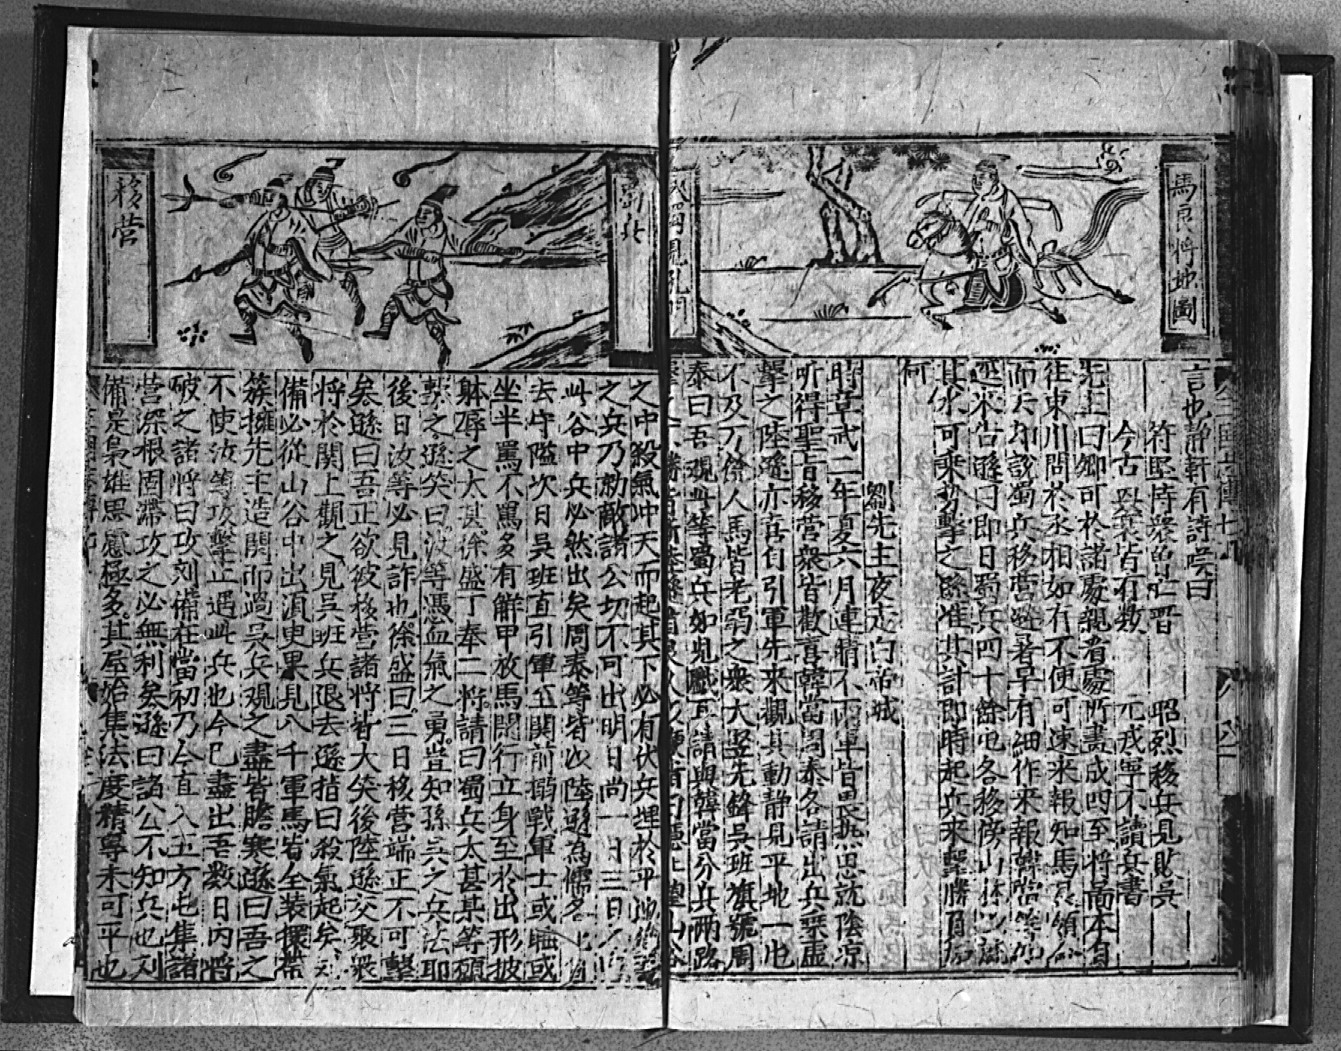 馬良將地圖
言也靜軒有詩嘆曰
符堅恃衆曾亡晉 昭烈移兵見敗吳
今古興衰皆有數 元戎寧不讀兵書
先主曰卿可於諸處親看處所畫成四至將圖本自
往東川問於丞相如有不便可速來報知馬良領命
而去却說蜀兵移營避暑早有細作來報韓當等
遜曰即日蜀兵四十餘屯各移傍山林
其水可乘勢擊之遜准其計即時起兵來擊勝負
何
劉先主夜走白帝城
時章武二年夏六月連晴不雨軍皆畏熱思就陰凉
听得聖旨移營衆皆歡喜韓當周泰各請出兵乘虛
擊之陸遜亦喜自引軍先來觀其動靜見平地一屯
不及万餘人馬皆老弱之衆大竪先鋒吳班旗號周
泰曰吾觀此等蜀兵如兒戲耳請與韓當分兵兩路
蜀兵
移營
之中殺氣冲天而起其下必有伏兵埋於平地
之兵乃勍敵諸公切不可出明日尚一日三日
此谷中兵必然出矣周泰等皆以陸遜為懦
去守隘次日吳班直引軍至関前搦戰軍士或睡或
坐半罵不罵多有觧甲放馬閑行立身至於出形披
躰辱之太甚徐盛丁奉二將請曰蜀兵太甚某等願
遜笑曰汝等憑血氣之勇豈知孫吳之兵法耶
後日汝等必見詐也徐盛曰三日移營端正不可擊
矣遜曰吾正欲彼移營諸將皆大笑後陸遜交聚衆
將於関上觀之見吳班兵退去遜指曰殺氣起矣
備必從山谷中出須臾果見八千軍馬皆全装擐帶
簇擁先主造関而過吳兵觀之盡皆膽寒遜曰吾之
不使汝等攻擊正遇此兵也今已盡出吾数日内將
破之諸將曰攻刘備在當初乃今直入五六屯集諸
營深根固滯攻之必無利矣遜曰諸公不知兵也刘
備是梟雄思慮極多其屋始集法度精專未可平也